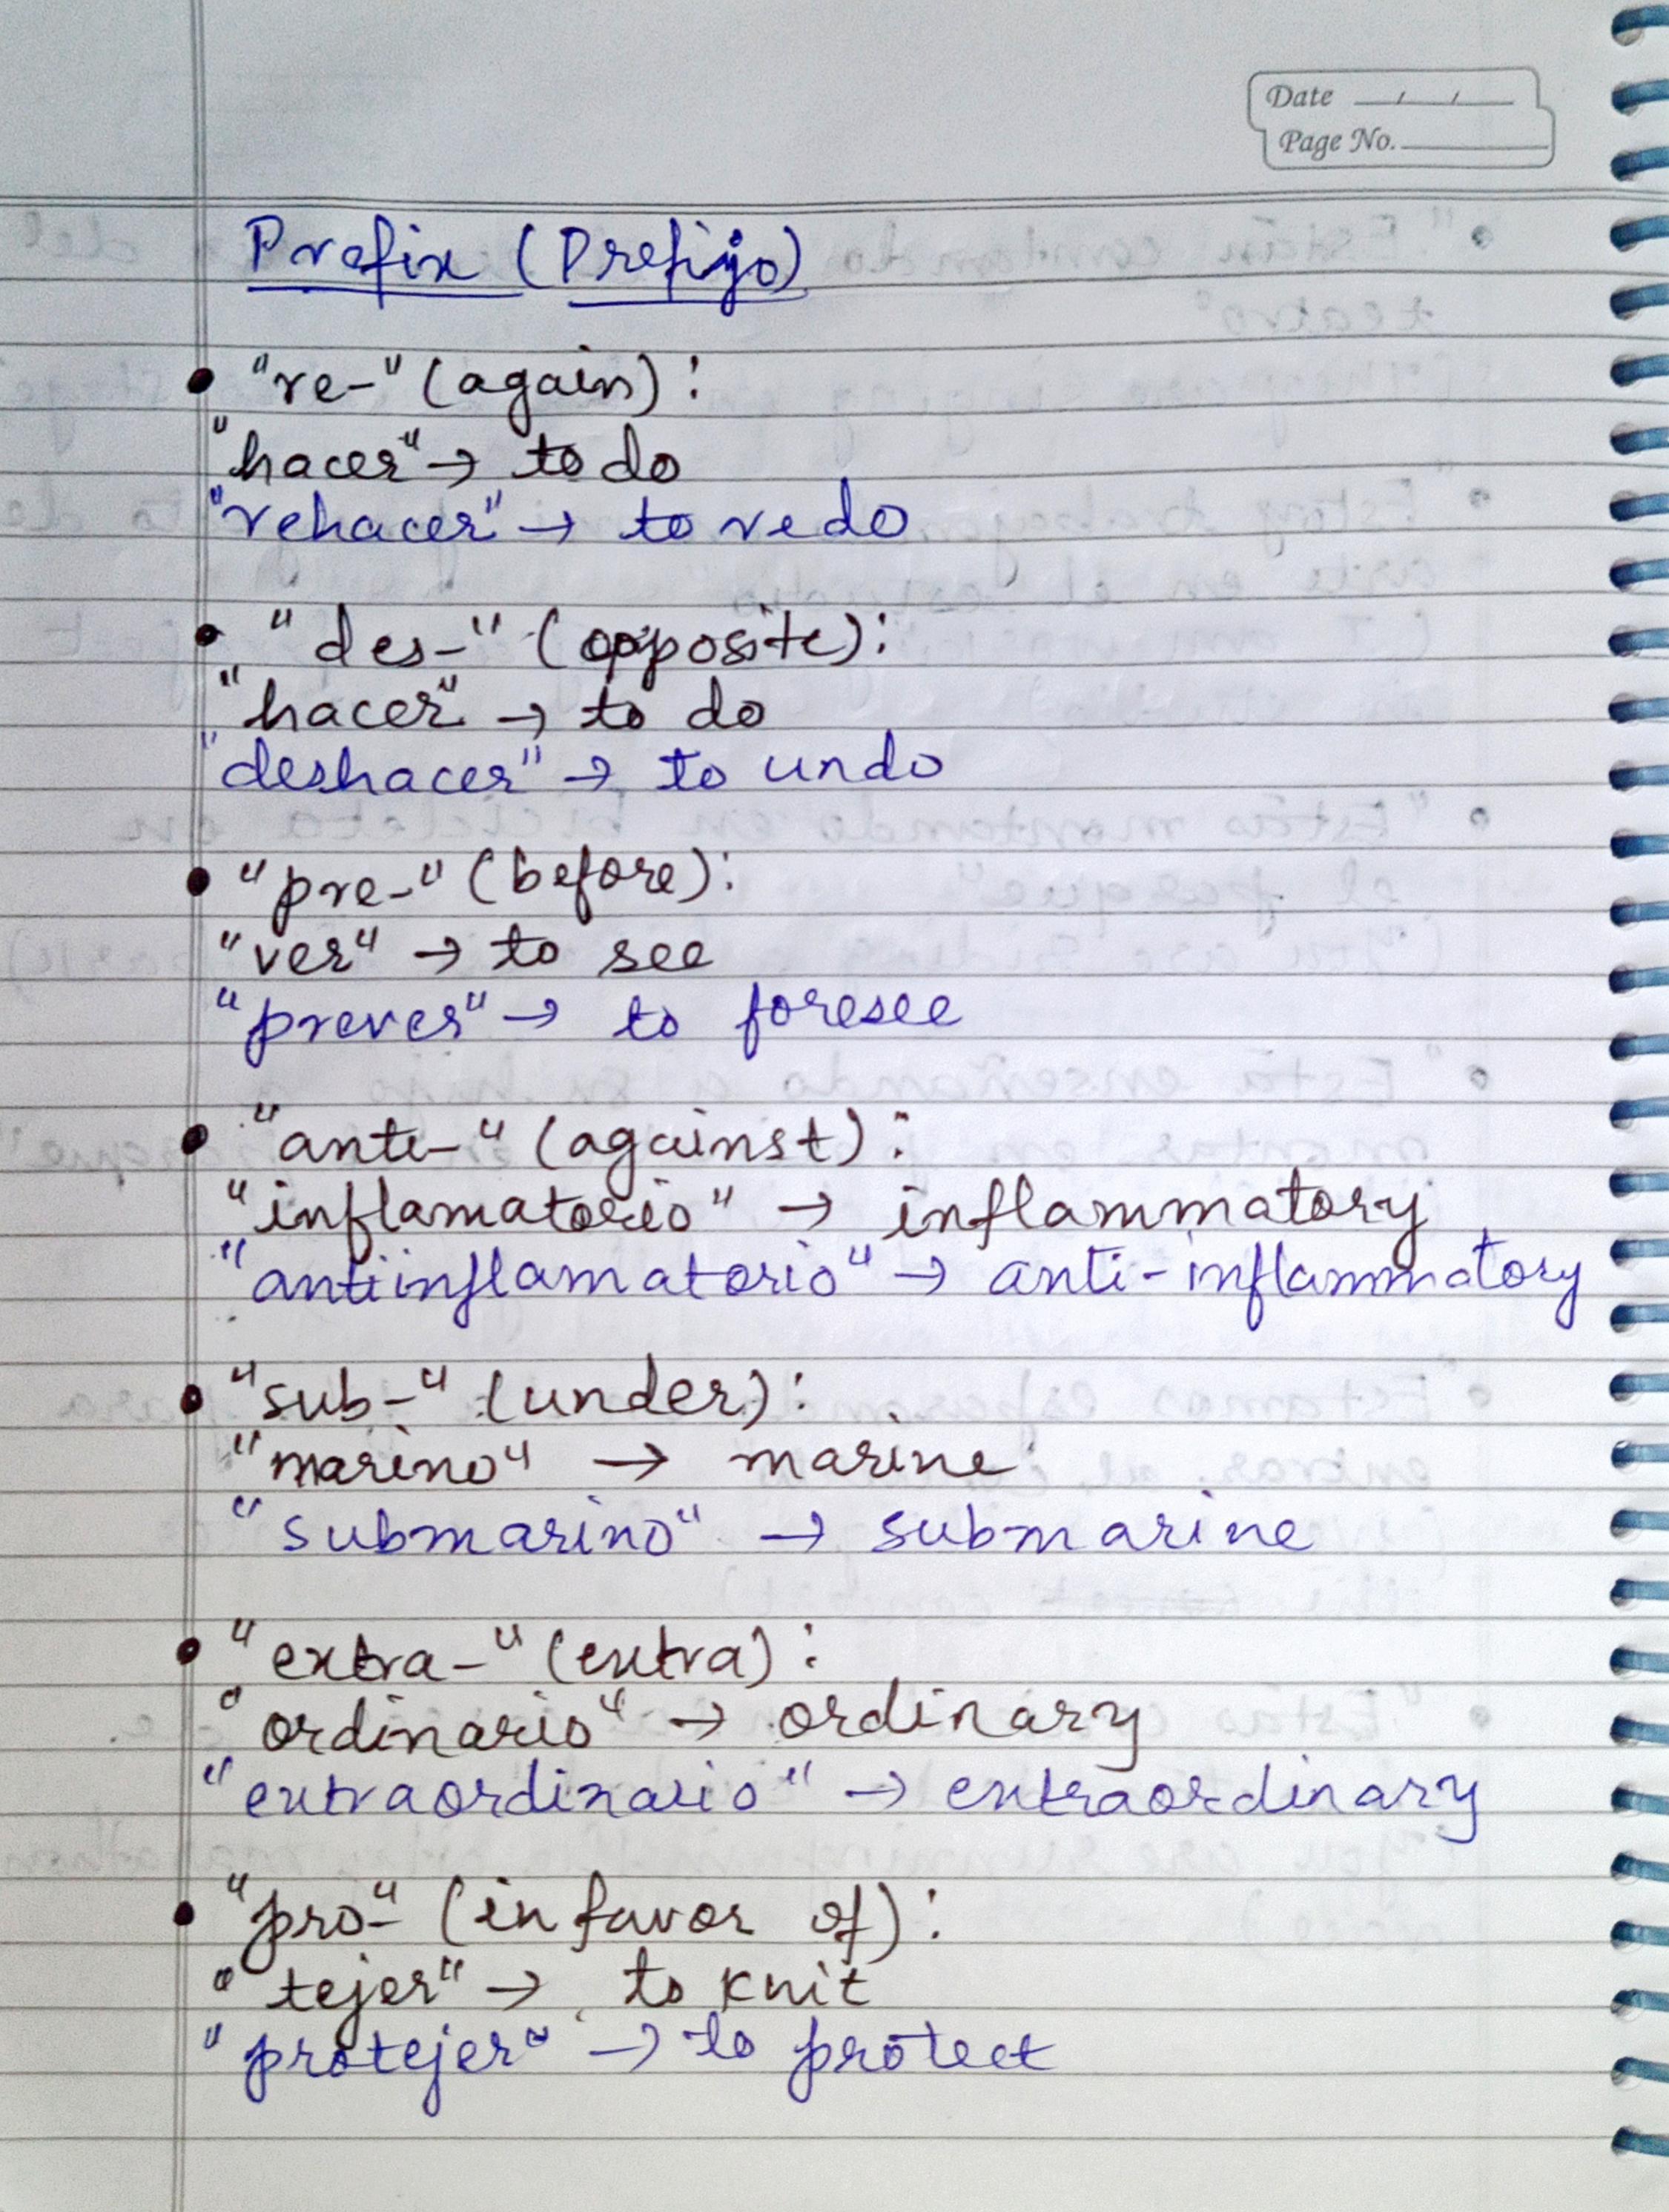 Date __/__/__
Page No. ______
Prefix (Prefijo)
• "re-" (again):
"hacer" → to do
"rehacer" → to redo
• "des-" (opposite):
"hacer" → to do
"deshacer" → to undo
• "pre-" (before):
"ver" → to see
"prever" → to foresee
• "anti-" (against):
"inflamatorio" → inflammatory
"antiinflamatorio" → anti-inflammatory
• "sub-" (under):
"marino" → marine
"submarino" → submarine
• "extra-" (extra):
"ordinario" → ordinary
"extraordinario" → extraordinary
• "pro-" (in favor of):
"tejer" → to knit
"protejer" → to protect